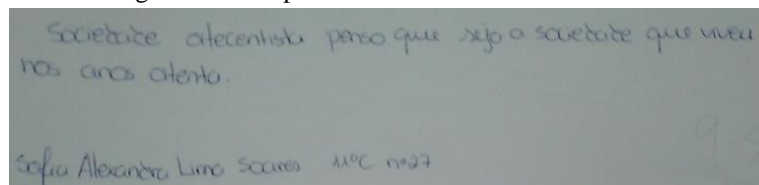 Sociedade oitecentista penso que seja a sociedade que viveu
nos anos oitenta.
Sofia Alexandra Lima Soares 11ºC nº27